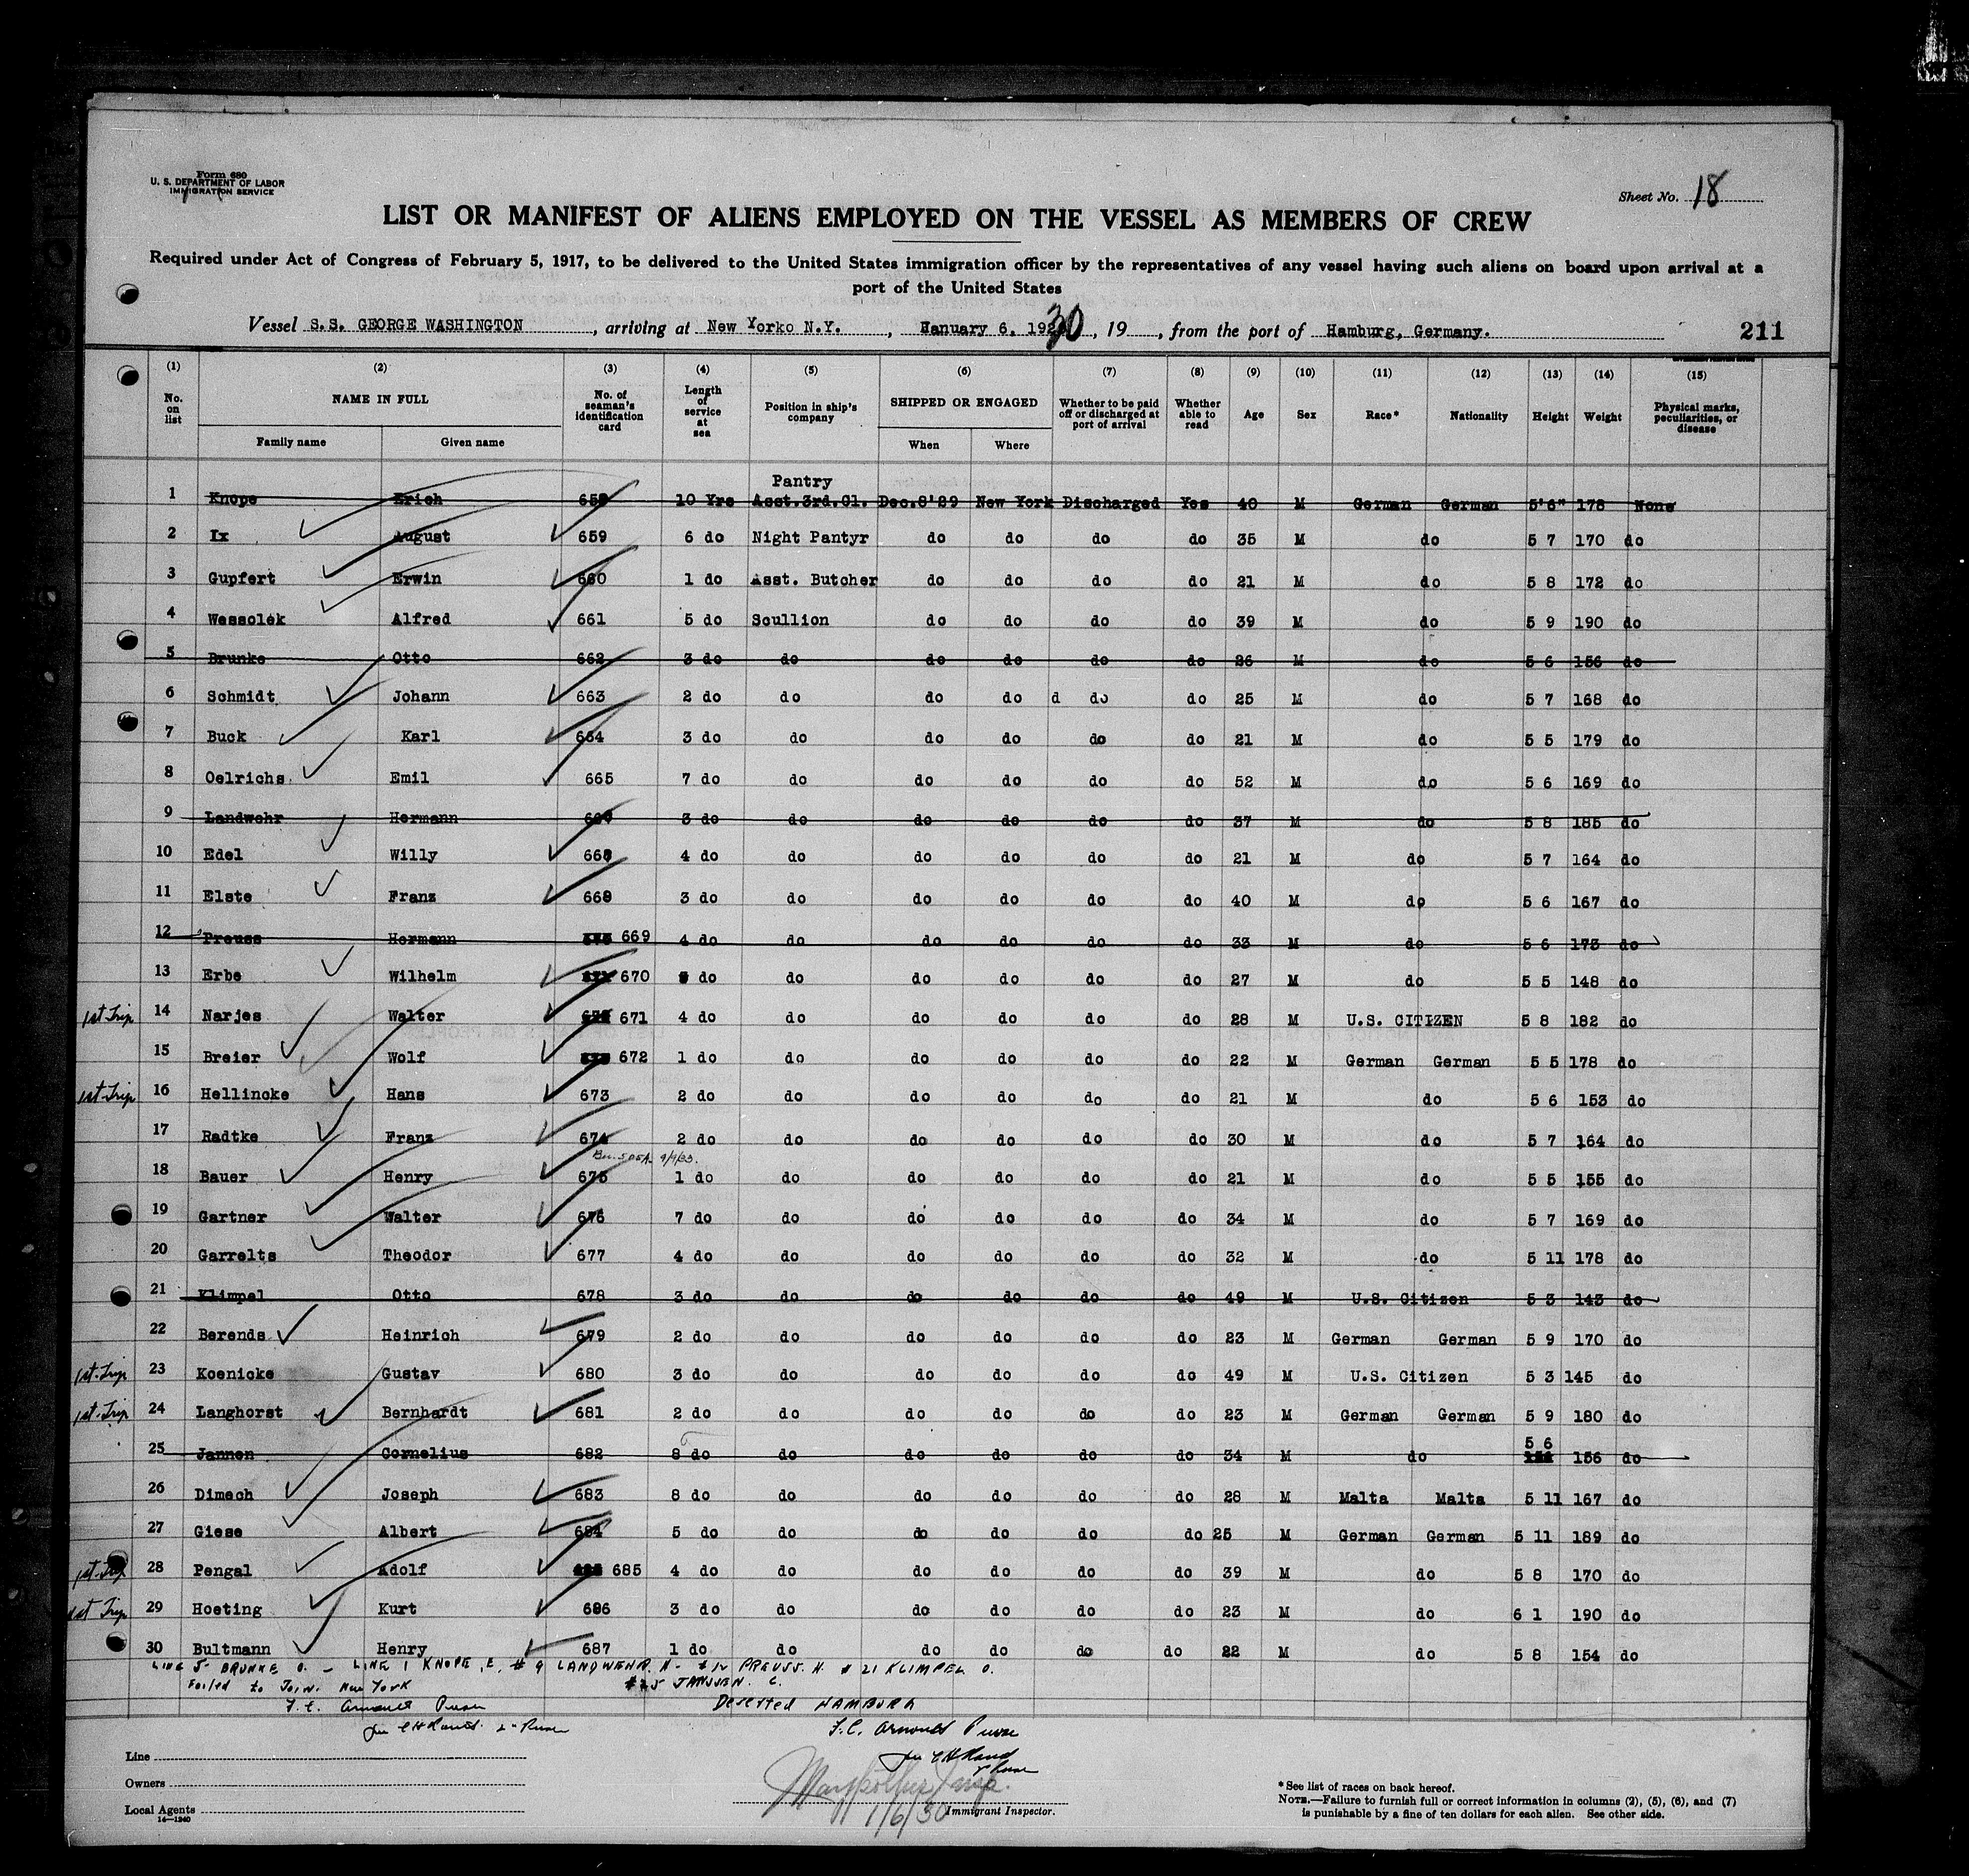 Form 680
U. S. DEPARTMENT OF LABOR
IMMIGRATION SERVICE
Sheet No. 18
LIST OR MANIFEST OF ALIENS EMPLOYED ON THE VESSEL AS MEMBERS OF CREW
Required under Act of Congress of February 5, 1917, to be delivered to the United States immigration officer by the representatives of any vessel having such aliens on board upon arrival at a
port of the United States
Vessel S.S. GEORGE WASHINGTON, arriving at New Yorko N.Y., Hanuary 6, 1930, 19 , from the port of Hamburg, Germany. 211
(1) (2) (3) (4) (5) (6) (7) (8) (9) (10) (11) (12) (13) (14) (15)
No. on list NAME IN FULL Family name Given name No. of seaman's identification card Length of service at sea Position in ship's company SHIPPED OR ENGAGED When Where Whether to be paid off or discharged at port of arrival Whether able to read Age Sex Race* Nationality Height Weight Physical marks, peculiarities, or disease
Pantry
1 Knope Erich 658 10 Yrs Asst.3rd.Cl. Dec.8'29 New York Discharged Yes 40 M German German 5'6" 178 None
2 Ix August 659 6 do Night Pantyr do do do do 35 M do 5 7 170 do
3 Gupfert Erwin 660 1 do Asst. Butcher do do do do 21 M do 5 8 172 do
4 Wessolek Alfred 661 5 do Scullion do do do do 39 M do 5 9 190 do
5 Brunke Otto 662 3 do do do do do do 26 M do 5 6 156 do
6 Schmidt Johann 663 2 do do do do d do do 25 M do 5 7 168 do
7 Buck Karl 664 3 do do do do do do 21 M do 5 5 179 do
8 Oelrichs Emil 665 7 do do do do do do 52 M do 5 6 169 do
9 Landwehr Hermann 3 do do do do do do 37 M do 5 8 185 do
10 Edel Willy 4 do do do do do do 21 M do 5 7 164 do
11 Elste Franz 3 do do do do do do 40 M do 5 6 167 do
12 Preuss Hermann 669 4 do do do do do do 33 M do 5 6 173 do
13 Erbe Wilhelm 670 do do do do do do 27 M do 5 5 148 do
1st Trip 14 Narjes Walter 671 4 do do do do do do 28 M U.S. CITIZEN 5 8 182 do
15 Breier Wolf 672 1 do do do do do do 22 M German German 5 5 178 do
1st Trip 16 Hellincke Hans 673 2 do do do do do do 21 M do 5 6 153 do
17 Radtke Franz 674 2 do do do do do do 30 M do 5 7 164 do
9/9/33.
18 Bauer Henry 675 1 do do do do do do 21 M do 5 5 155 do
19 Gartner Walter 676 7 do do do do do do 34 M do 5 7 169 do
20 Garrelts Theodor 677 4 do do do do do do 32 M do 5 11 178 do
21 Klimpel Otto 678 3 do do do do do do 49 M U.S. Citizen 5 3 143 do
22 Berends Heinrich 679 2 do do do do do do 23 M German German 5 9 170 do
1st Trip 23 Koenicke Gustav 680 3 do do do do do do 49 M U.S. Citizen 5 3 145 do
1st Trip 24 Langhorst Bernhardt 681 2 do do do do do do 23 M German German 5 9 180 do
25 Jannen Cornelius 682 8 do do do do do do 34 M do 5 6 156 do
26 Dimech Joseph 683 8 do do do do do do 28 M Malta Malta 5 11 167 do
27 Giese Albert 684 5 do do do do do do 25 M German German 5 11 189 do
1st Trip 28 Pengal Adolf 685 4 do do do do do do 39 M do 5 8 170 do
1st Trip 29 Hoeting Kurt 686 3 do do do do do do 23 M do 6 1 190 do
30 Bultmann Henry 687 1 do do do do do do 22 M do 5 8 154 do
LINE 5 BRUNKE O. – LINE 1 KNOPE, E, # 9 LANDWEHR. H - #12 PREUSS. H. # 21 KLIMPEL O.
Failed to Join. New York #25 JANSSEN. C.
Deserted HAMBURG
Line
Owners
Local Agents
14—1240
1/6/30 Immigrant Inspector.
* See list of races on back hereof.
NOTE.—Failure to furnish full or correct information in columns (2), (5), (6), and (7)
is punishable by a fine of ten dollars for each alien. See other side.